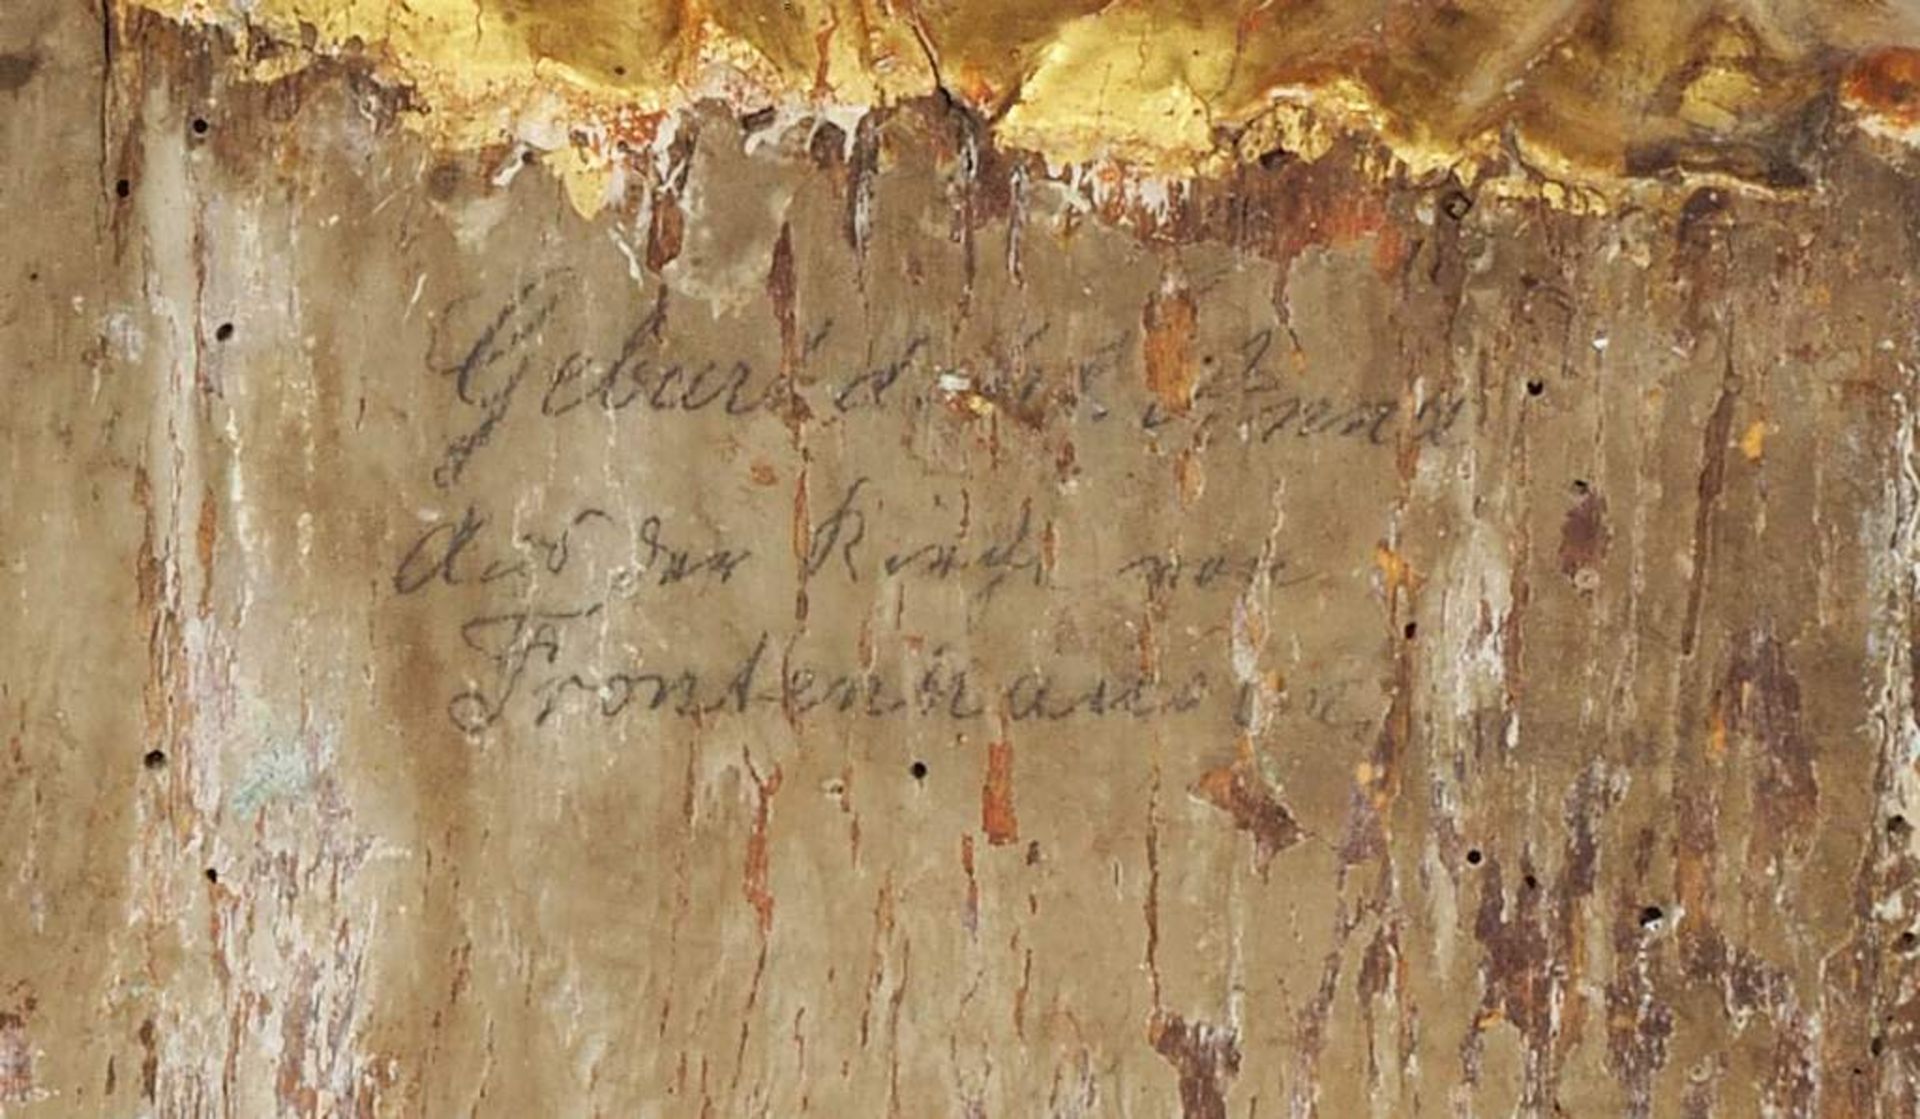 Geburt d.
Aus der Kirche von
Frontenhausen